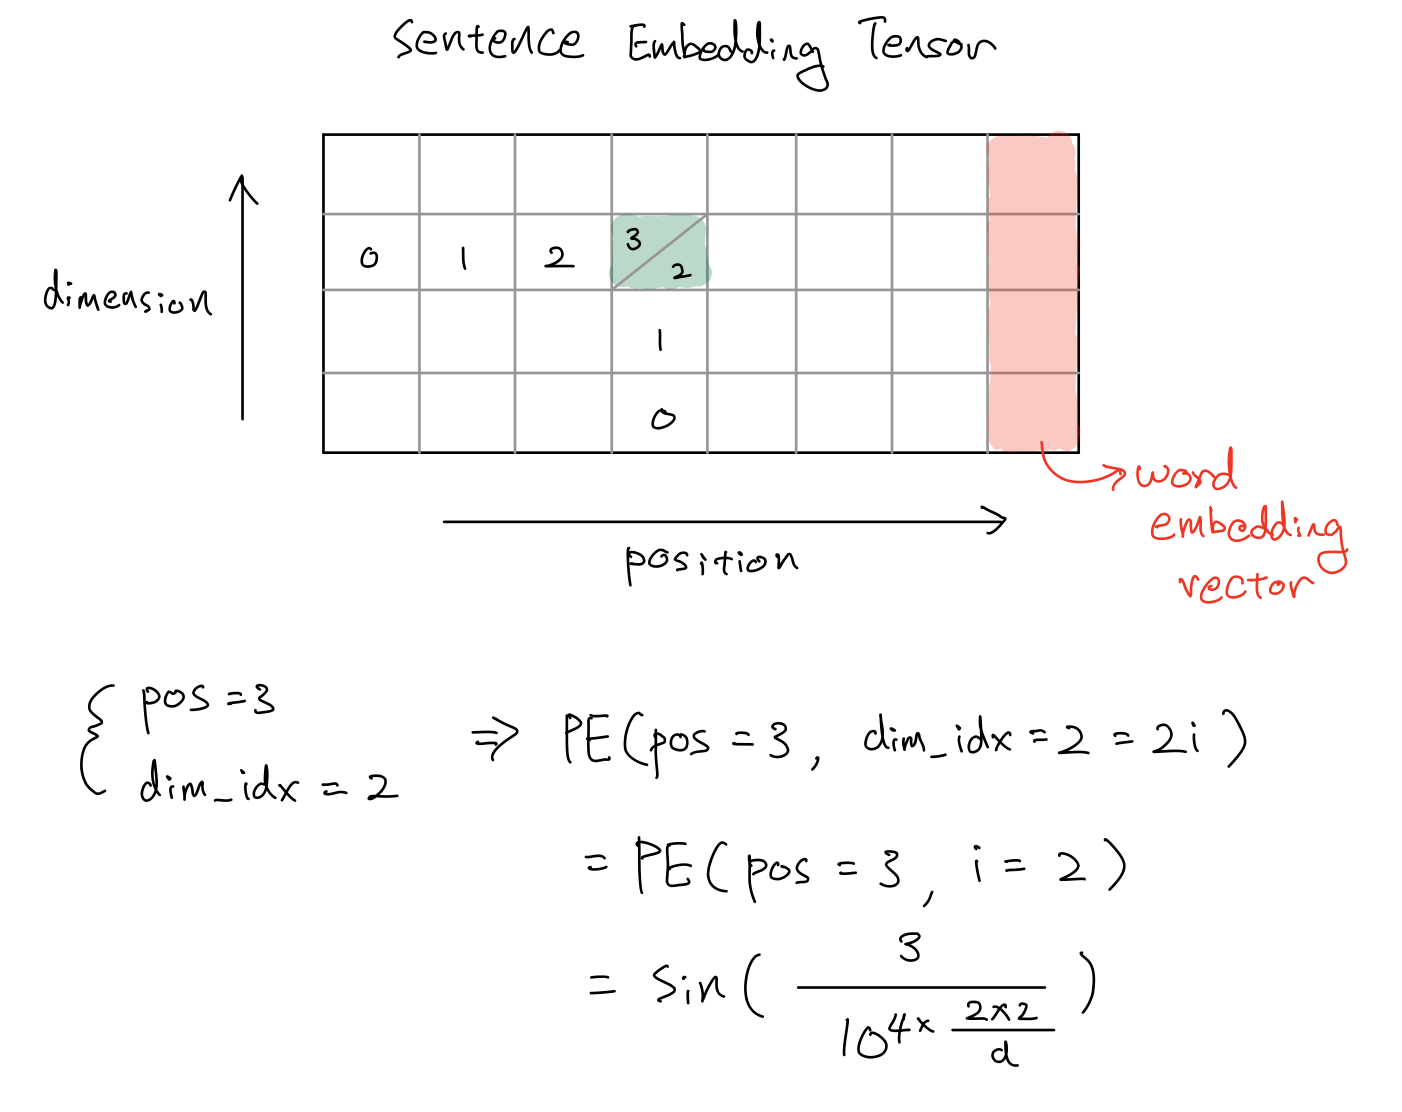 Sentence Embedding Tensor
dimension
0 1 2 3 2
1
0
position
word
embedding
vector
pos = 3
dim_idx = 2
⇒ PE(pos = 3, dim_idx = 2 = 2i)
= PE(pos = 3, i = 2)
= Sin( 3 / 10^(4 x 2x2/d) )